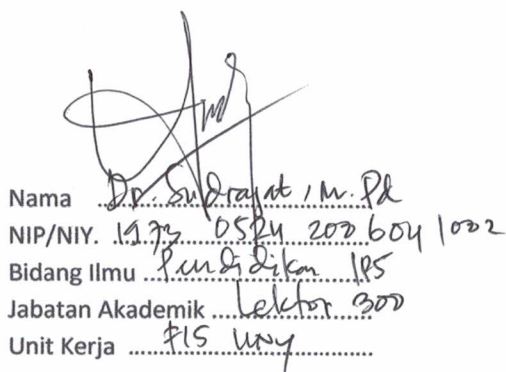 Nama Dr. Sudrajat, M.Pd
NIP/NIY. 1973 0524 200604 1002
Bidang Ilmu Pendidikan IPS
Jabatan Akademik Lektor 300
Unit Kerja FIS UNY